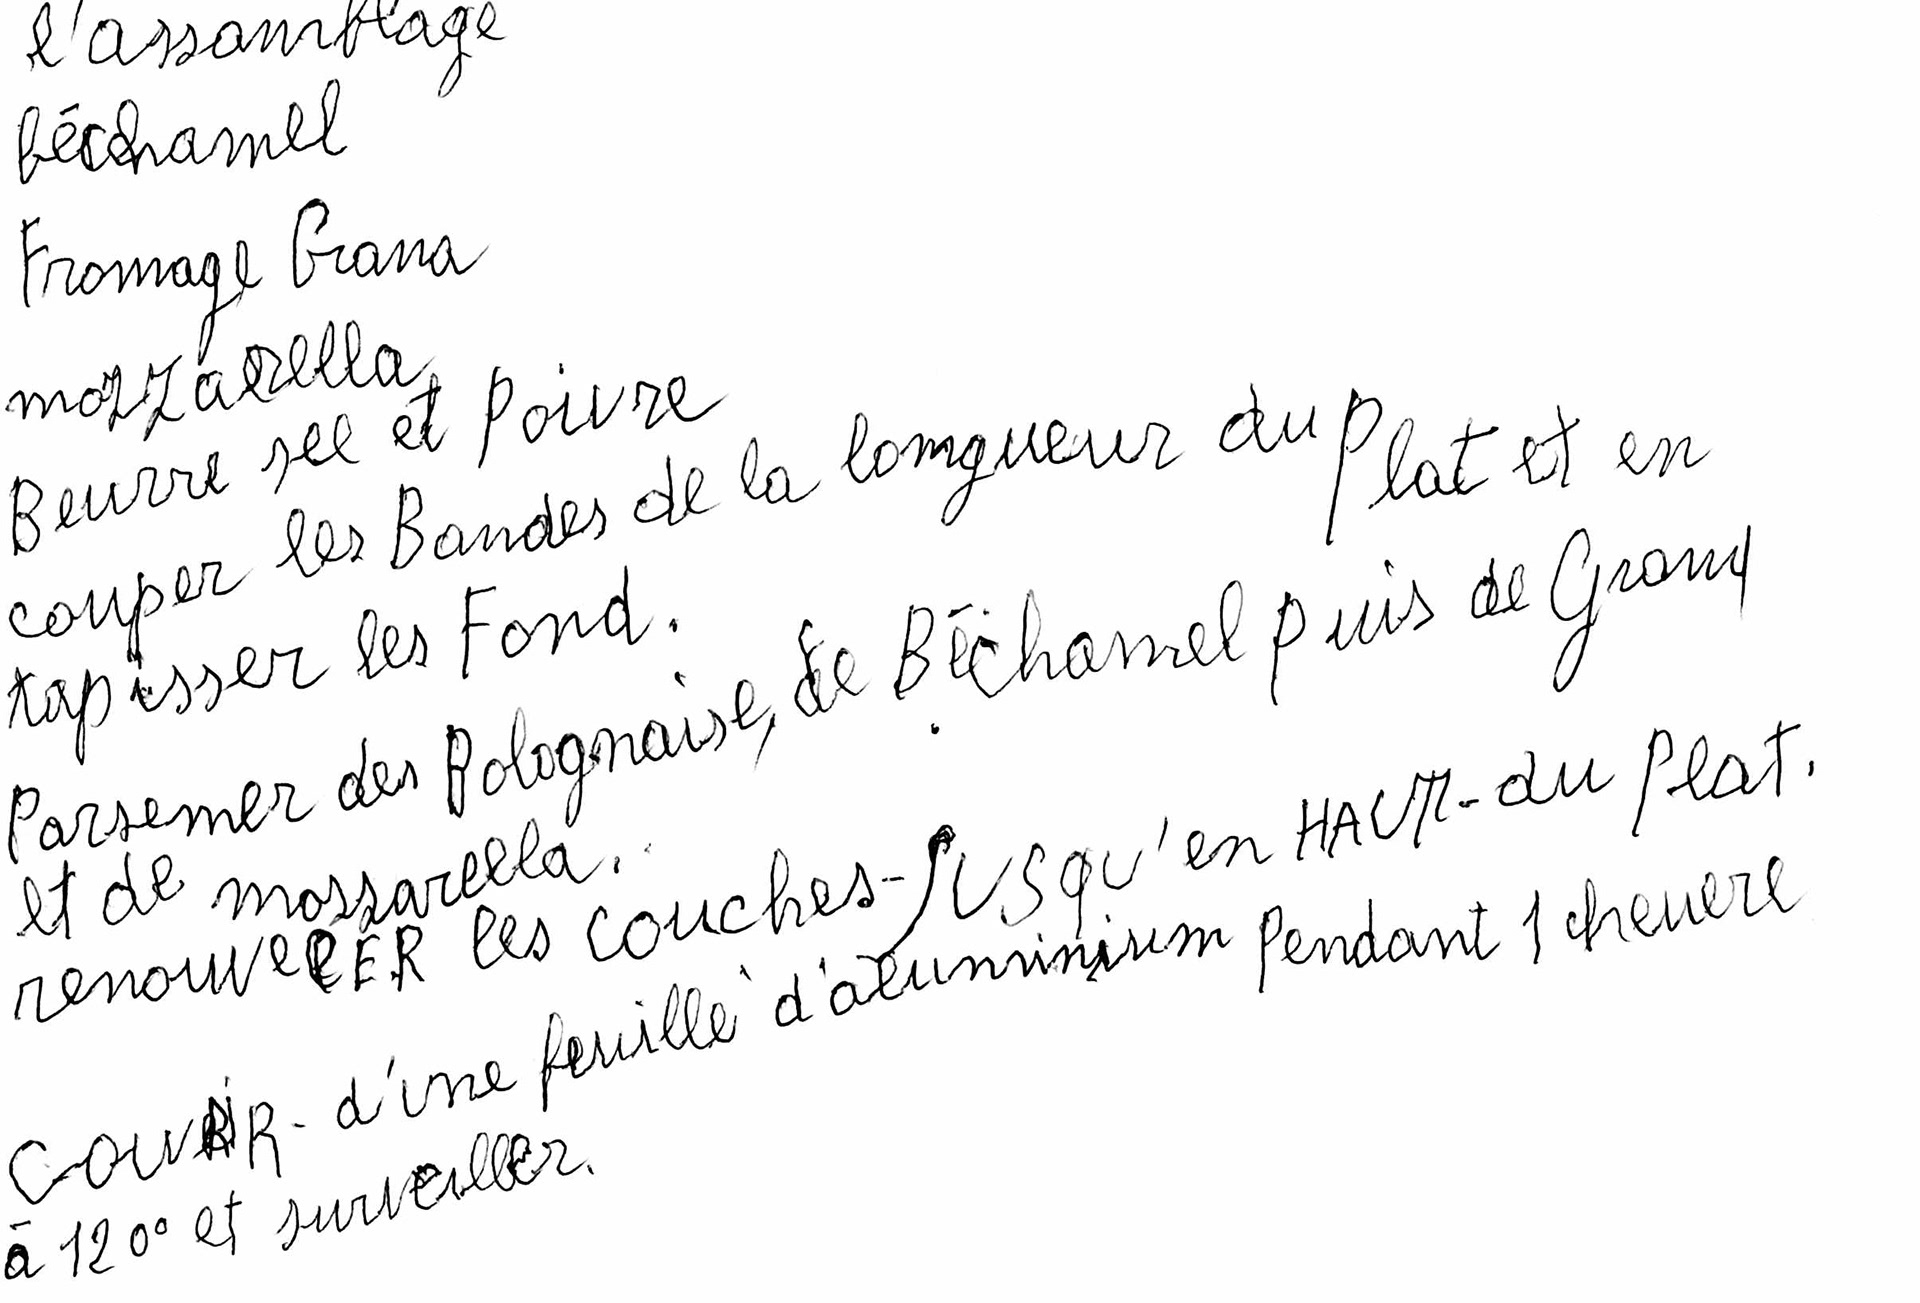 l'assamblage
béchamel
Fromage Grana
mozzarella
Beurre sel et Poivre
couper les Bandes de la longueur du Plat et en
tapisser les Fond.
Parsemer des Bolognaise, de Béchamel puis de Grana
et de mossarella.
renouveler les couches- JUSqu'en HAUT- du Plat.
COUVRIR- d'une feuille d'aluminium Pendant 1 heure
à 120° et surveiller.